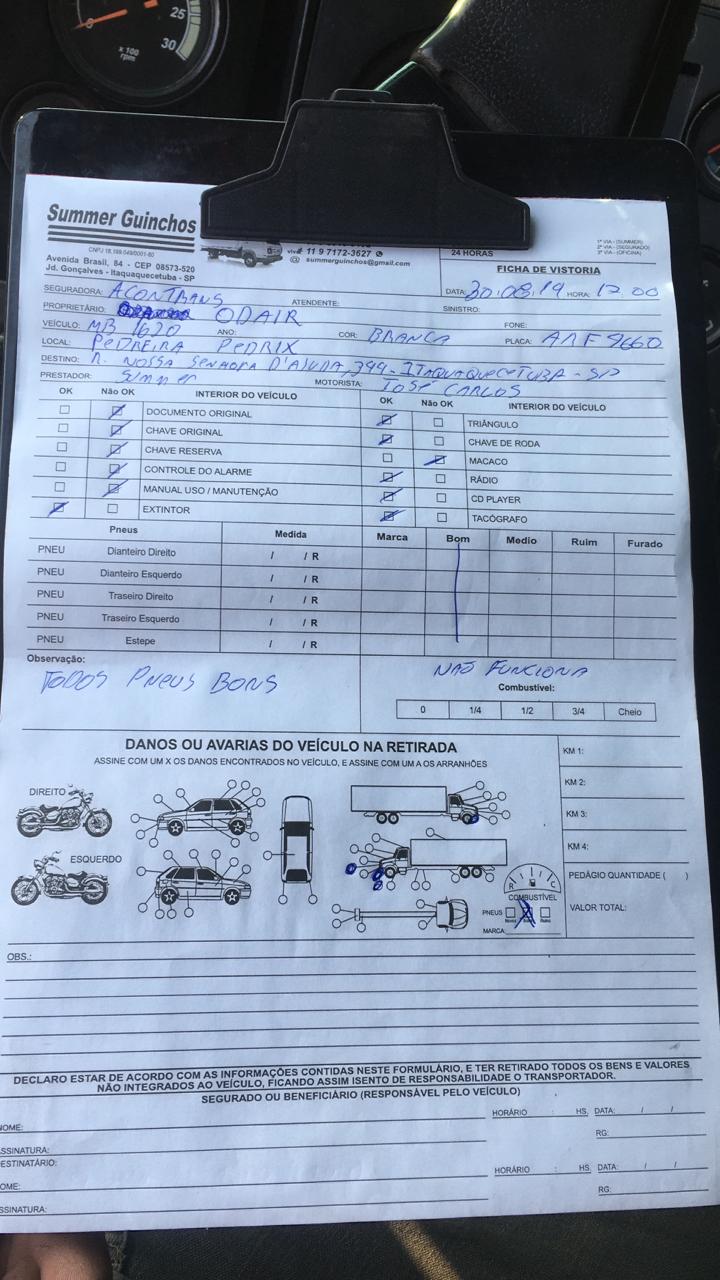 25
30
x 100
rpm
Summer Guinchos
CNPJ 18.199.549/0001-80
Avenida Brasil, 84 - CEP 08573-520
Jd. Gonçalves - Itaquaquecetuba - SP
11 9 7172-3627
@ summerguinchos@gmail.com
24 HORAS
1ª VIA - (SUMMER)
2ª VIA - (SEGURADO)
3ª VIA - (OFICINA)
FICHA DE VISTORIA
SEGURADORA: ACONTRANS ATENDENTE: DATA: 30.08.19 HORA: 12.00
PROPRIETÁRIO: ODAIR SINISTRO:
VEÍCULO: MB 1620 ANO: COR: BRANCA FONE:
LOCAL: PEDREIRA PEDRIX PLACA: 9660
DESTINO: R. NOSSA SENHORA D'AJUDA, 399 - ITAQUAQUECETUBA - SP
PRESTADOR: Summer MOTORISTA: JOSÉ CARLOS
OK Não OK INTERIOR DO VEÍCULO OK Não OK INTERIOR DO VEÍCULO
DOCUMENTO ORIGINAL TRIÂNGULO
CHAVE ORIGINAL CHAVE DE RODA
CHAVE RESERVA MACACO
CONTROLE DO ALARME RÁDIO
MANUAL USO / MANUTENÇÃO CD PLAYER
EXTINTOR TACÓGRAFO
Pneus Medida Marca Bom Medio Ruim Furado
PNEU Dianteiro Direito / / R
PNEU Dianteiro Esquerdo / / R
PNEU Traseiro Direito / / R
PNEU Traseiro Esquerdo / / R
PNEU Estepe / / R
Observação:
TODOS PNEUS BONS
NÃO FUNCIONA
Combustível:
0 1/4 1/2 3/4 Cheio
DANOS OU AVARIAS DO VEÍCULO NA RETIRADA
ASSINE COM UM X OS DANOS ENCONTRADOS NO VEÍCULO, E ASSINE COM UM A OS ARRANHÕES
DIREITO
ESQUERDO
KM 1:
KM 2:
KM 3:
KM 4:
R C
COMBUSTÍVEL
PNEUS
MARCA
PEDÁGIO QUANTIDADE ( )
VALOR TOTAL:
OBS.:
DECLARO ESTAR DE ACORDO COM AS INFORMAÇÕES CONTIDAS NESTE FORMULÁRIO, E TER RETIRADO TODOS OS BENS E VALORES
NÃO INTEGRADOS AO VEÍCULO, FICANDO ASSIM ISENTO DE RESPONSABILIDADE O TRANSPORTADOR.
SEGURADO OU BENEFICIÁRIO (RESPONSÁVEL PELO VEÍCULO)
HORÁRIO : HS, DATA: / /
NOME: RG:
ASSINATURA:
DESTINATÁRIO: HORÁRIO : HS DATA: / /
NOME: RG:
ASSINATURA: